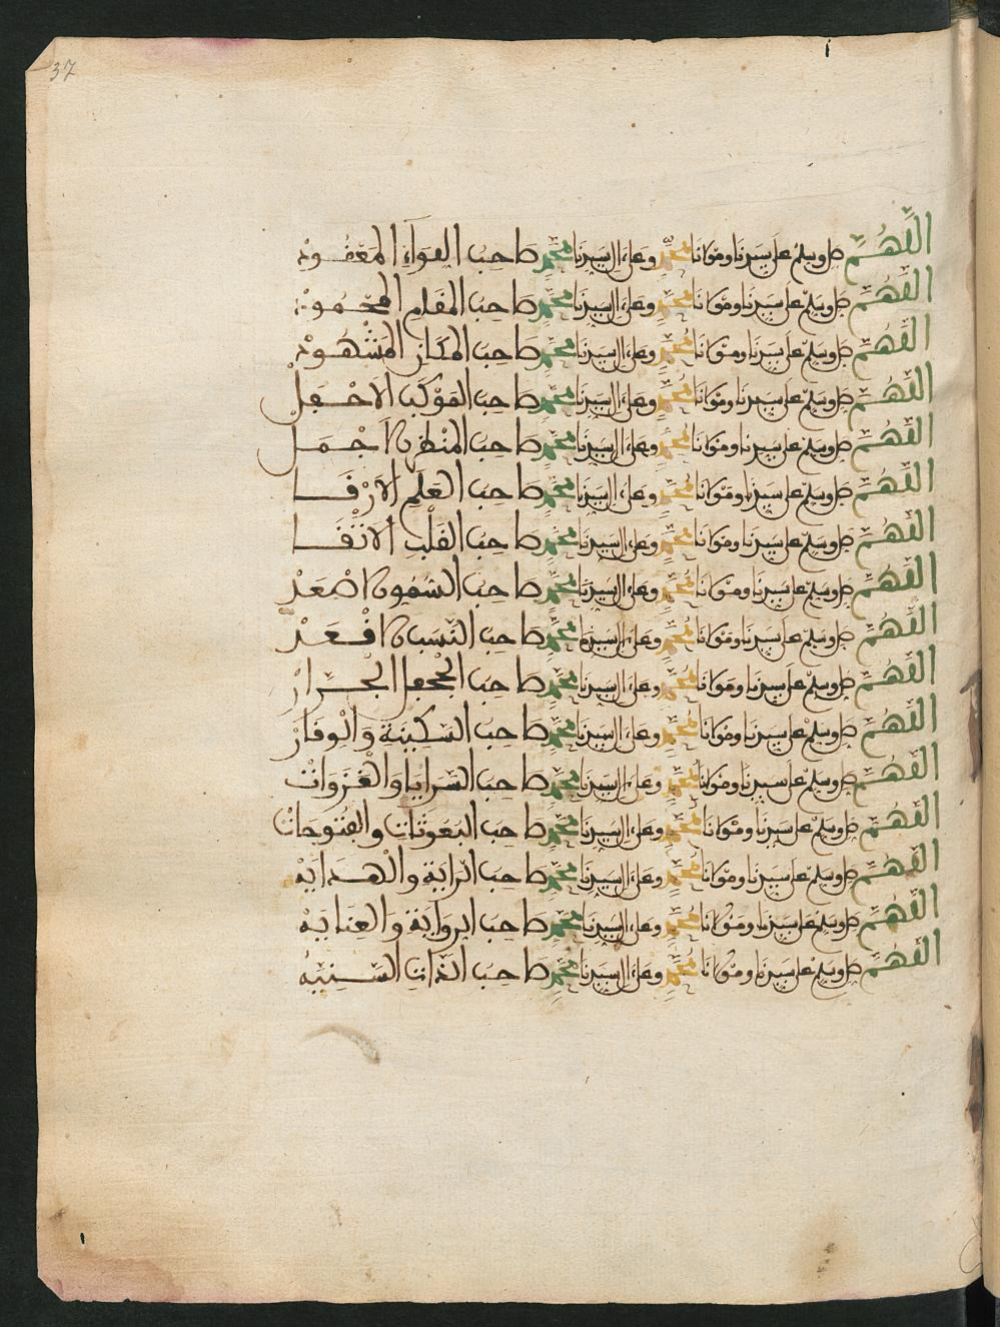 37
اللَّهُمَّ صل وسلم على سيدنا ومولانا محمد وعلى ءال سيدنا محمد صاحب اللواء المعقود
اللهم صل وسلم على سيدنا ومولانا محمد وعلى ءال سيدنا محمد صاحب المقام المحمود
اللهم صل وسلم على سيدنا ومولانا محمد وعلى ءال سيدنا محمد صاحب المكان المشهود
اللهم صل وسلم على سيدنا ومولانا محمد وعلى ءال سيدنا محمد صاحب الموكب الاحفل
اللهم صل وسلم على سيدنا ومولانا محمد وعلى ءال سيدنا محمد صاحب المنظر الاجمل
اللهم صل وسلم على سيدنا ومولانا محمد وعلى ءال سيدنا محمد صاحب العلم الارقا
اللهم صل وسلم على سيدنا ومولانا محمد وعلى ءال سيدنا محمد صاحب القلب الاتقا
اللهم صل وسلم على سيدنا ومولانا محمد وعلى ءال سيدنا محمد صاحب السمو الاصعد
اللهم صل وسلم على سيدنا ومولانا محمد وعلى ءال سيدنا محمد صاحب النسب الاقعد
اللهم صل وسلم على سيدنا ومولانا محمد وعلى ءال سيدنا محمد صاحب الجحفل الجرار
اللهم صل وسلم على سيدنا ومولانا محمد وعلى ءال سيدنا محمد صاحب السكينة والوقار
اللهم صل وسلم على سيدنا ومولانا محمد وعلى ءال سيدنا محمد صاحب السرايا والغزوات
اللهم صل وسلم على سيدنا ومولانا محمد وعلى ءال سيدنا محمد صاحب البعوثات والفتوحات
اللهم صل وسلم على سيدنا ومولانا محمد وعلى ءال سيدنا محمد صاحب الراية والهداية
اللهم صل وسلم على سيدنا ومولانا محمد وعلى ءال سيدنا محمد صاحب الرواية والعناية
اللهم صل وسلم على سيدنا ومولانا محمد وعلى ءال سيدنا محمد صاحب الذات السنيه